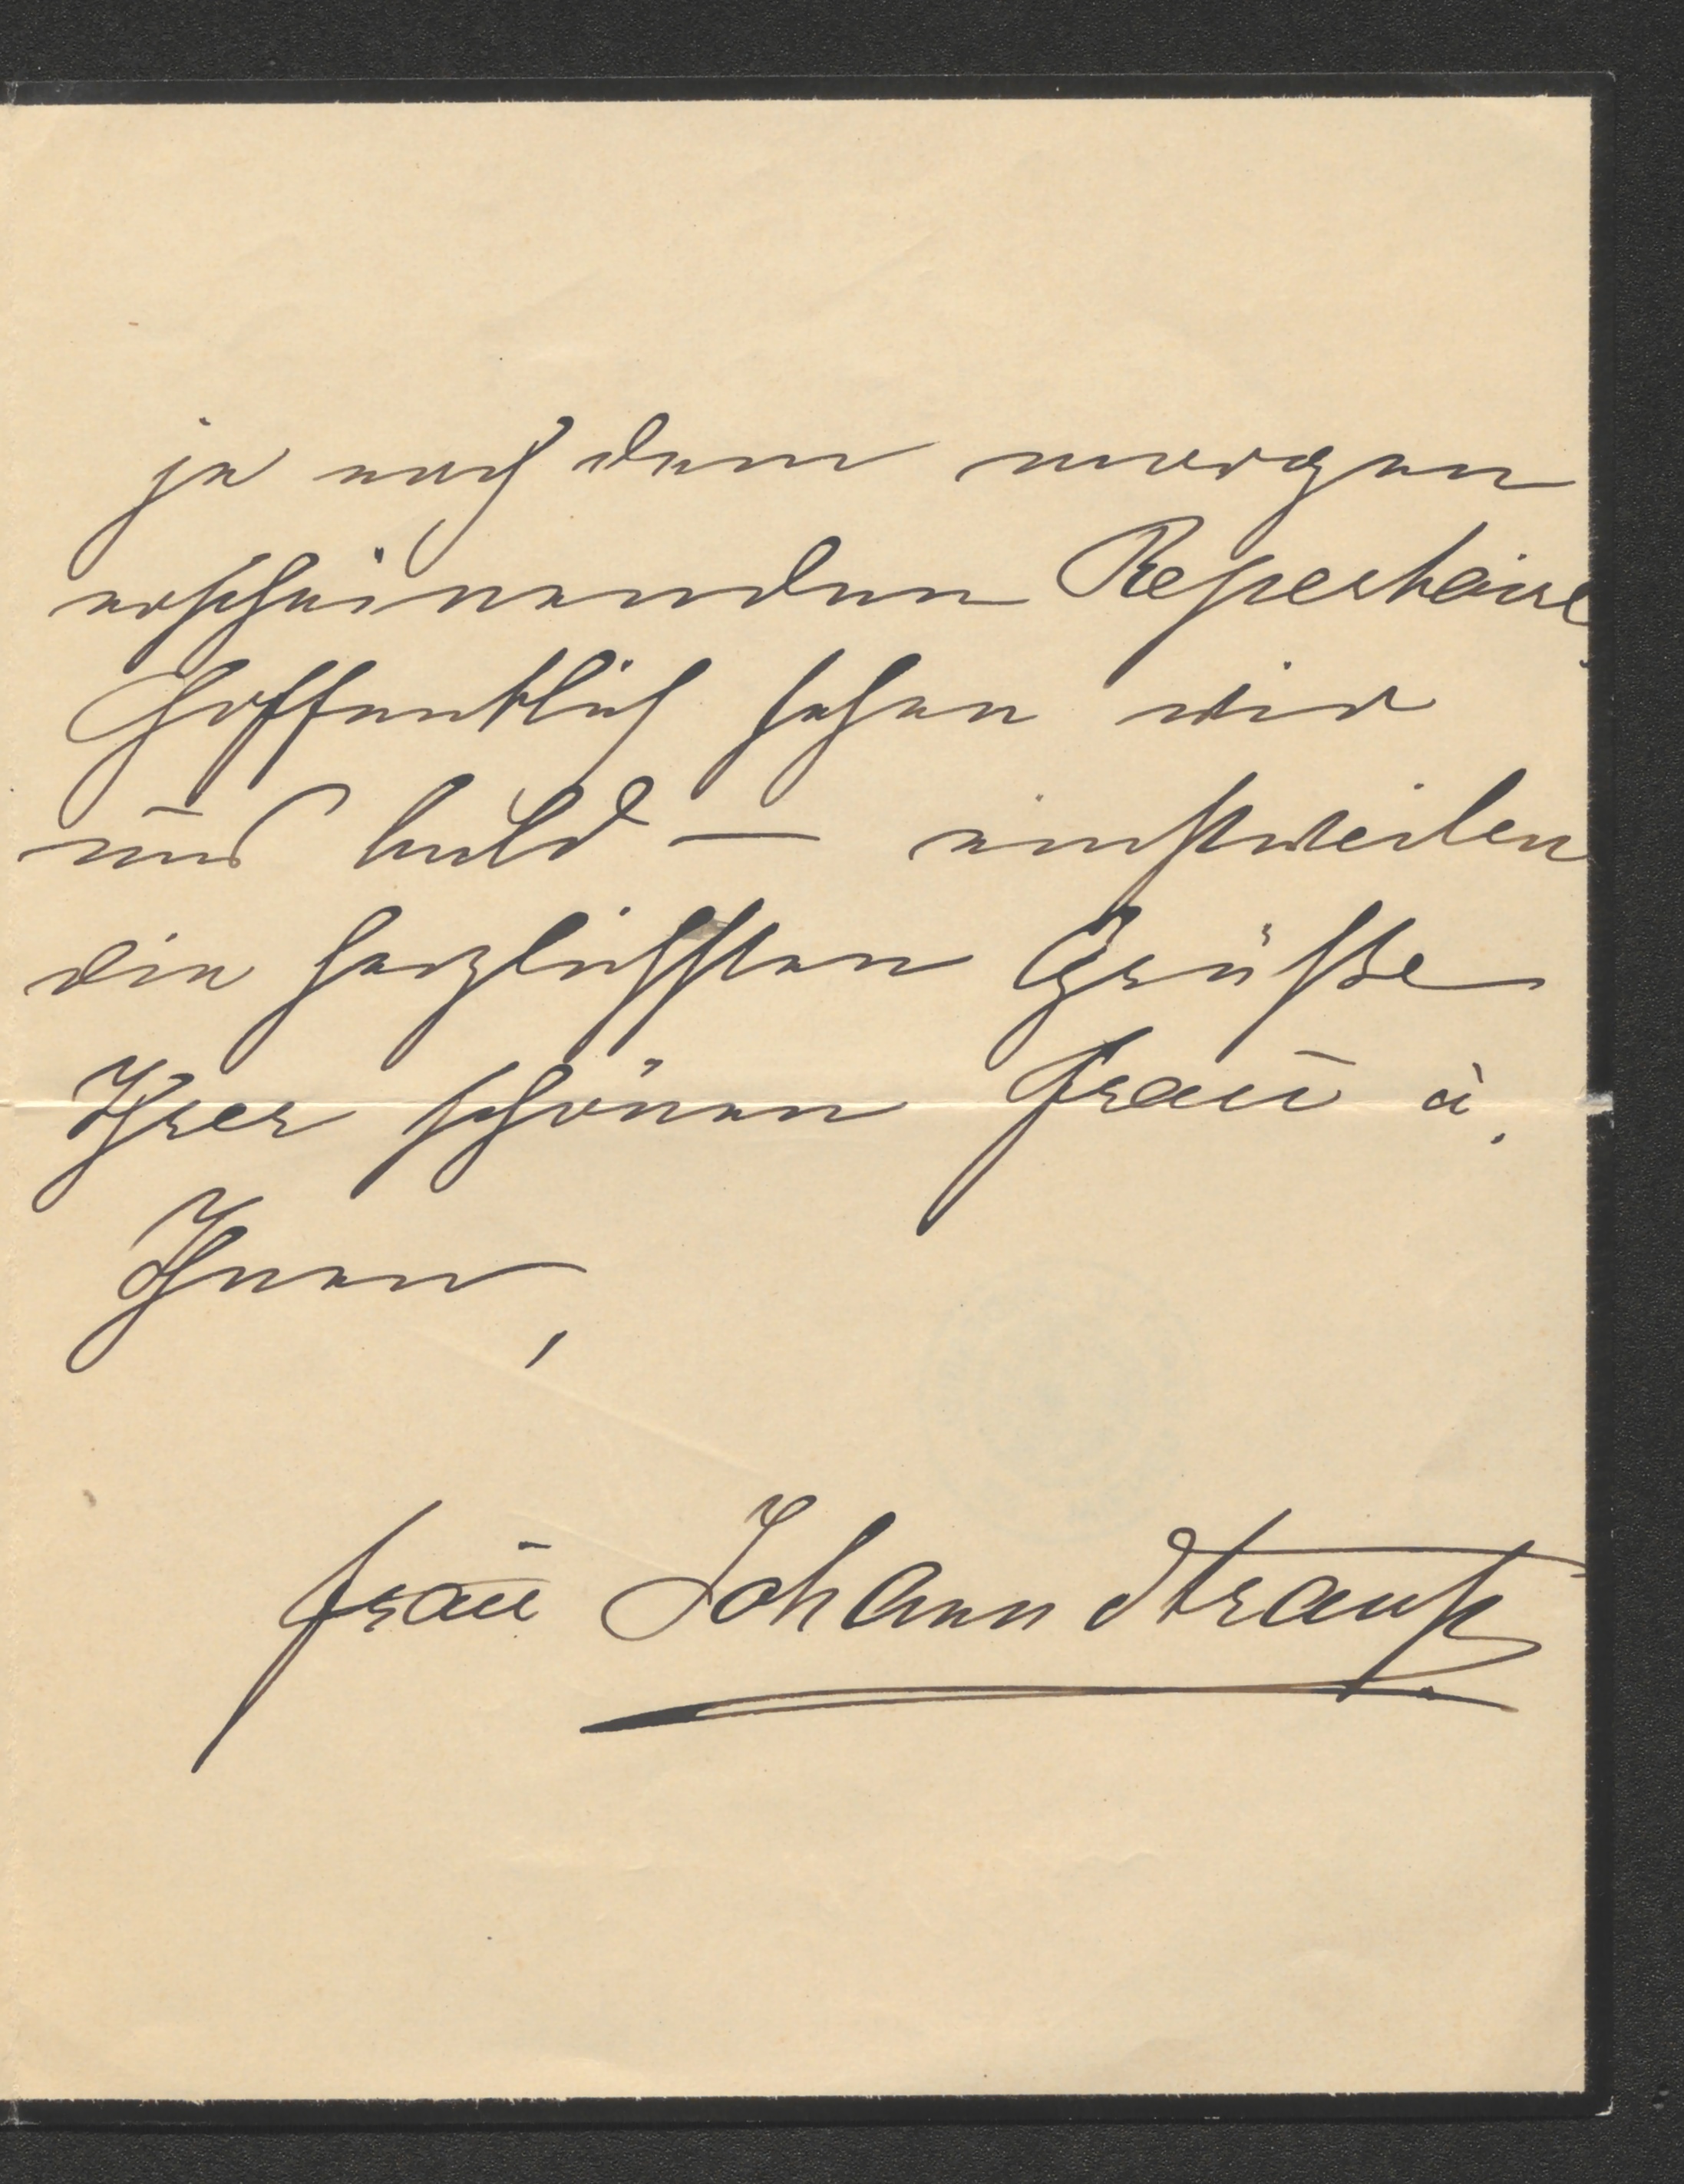 je nach dem morgen
erscheinenden Repertoire.
Hoffentlich sehen wir
uns bald — einstweilen
die herzlichsten Grüße
Ihrer schönen Frau u.
Ihnen,
Frau Johann Strauß